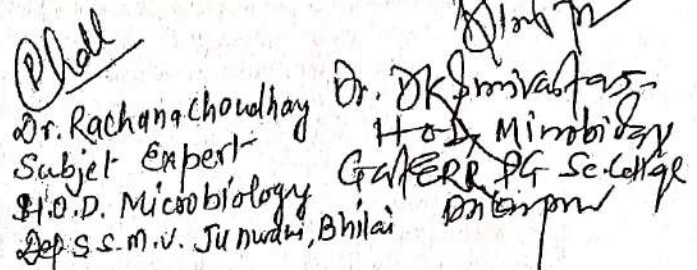 Dr. Rachana Choudhary
Subjet Expert
H.O.D. Microbiology
Dep S.S.M.V. Junwani, Bhilai
Dr. DK Srivastava
H.O.D, Microbiology
Govt ERR PG Sc. College